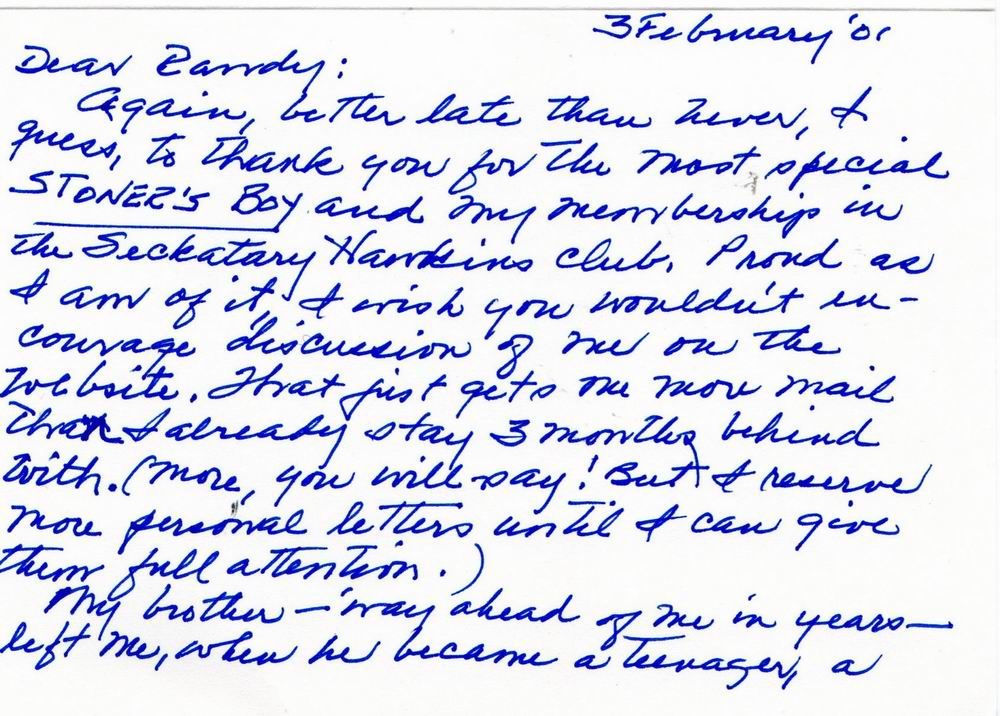 3 February '01
Dear Randy:
Again, better late than never, I
guess, to thank you for the most special
STONER'S BOY and my membership in
the Seckatary Hawkins club. Proud as
I am of it, I wish you wouldn't en-
courage discussion of me on the
website. That just gets me more mail
than I already stay 3 months behind
with. (More, you will say! But I reserve
more personal letters until I can give
them full attention.)
My brother—'way ahead of me in years—
left me, when he became a teenager, a